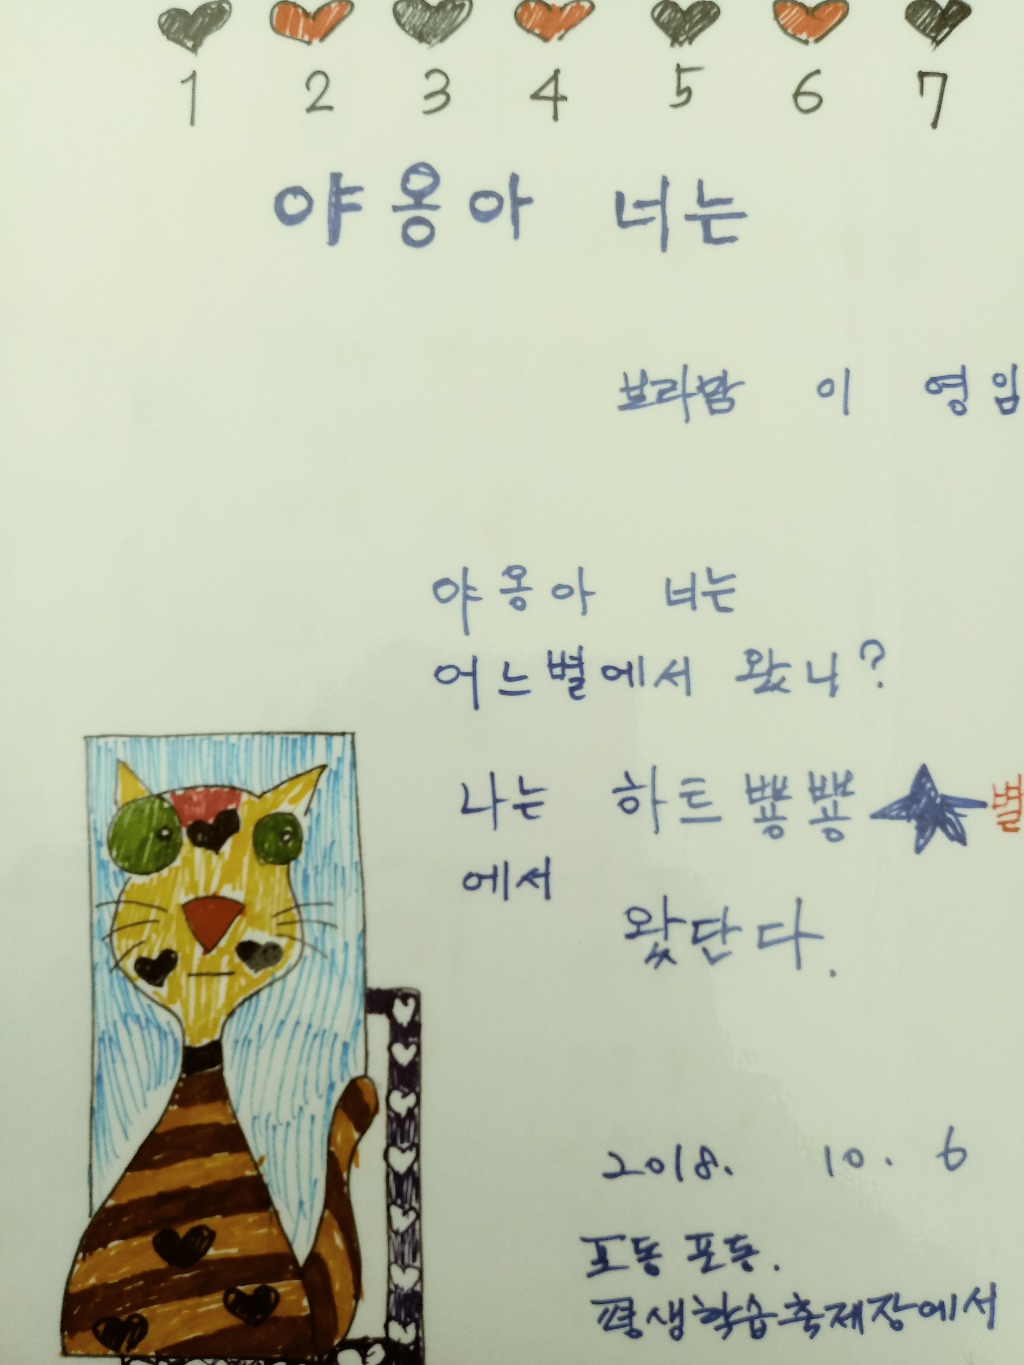 1 2 3 4 5 6 7
야옹아 너는
보라맘 이 영임
야옹아 너는
어느별에서 왔니?
나는 하트뿅뿅 별
에서
왔단다.
2018. 10. 6
포동포동.
평생학습축제장에서